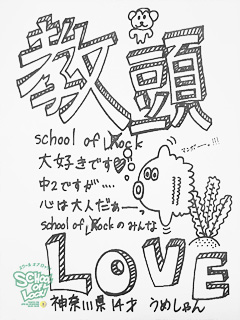 教頭
school of Rock
大好きです♡
中2ですが‥‥
心は大人だぁーっ
school of Rockのみんな
LOVE
神奈川県 14才 うめしゃん
SCHOOL OF LOCK!